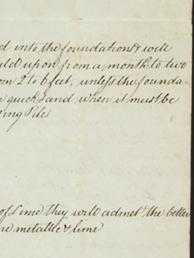 d into the foundations & well
uld upon from a month to two
om 2 to 6 feet, unless the founda-
quicksand when it must be
ing Pile
of Lime they will admit the better
re metattle & lime